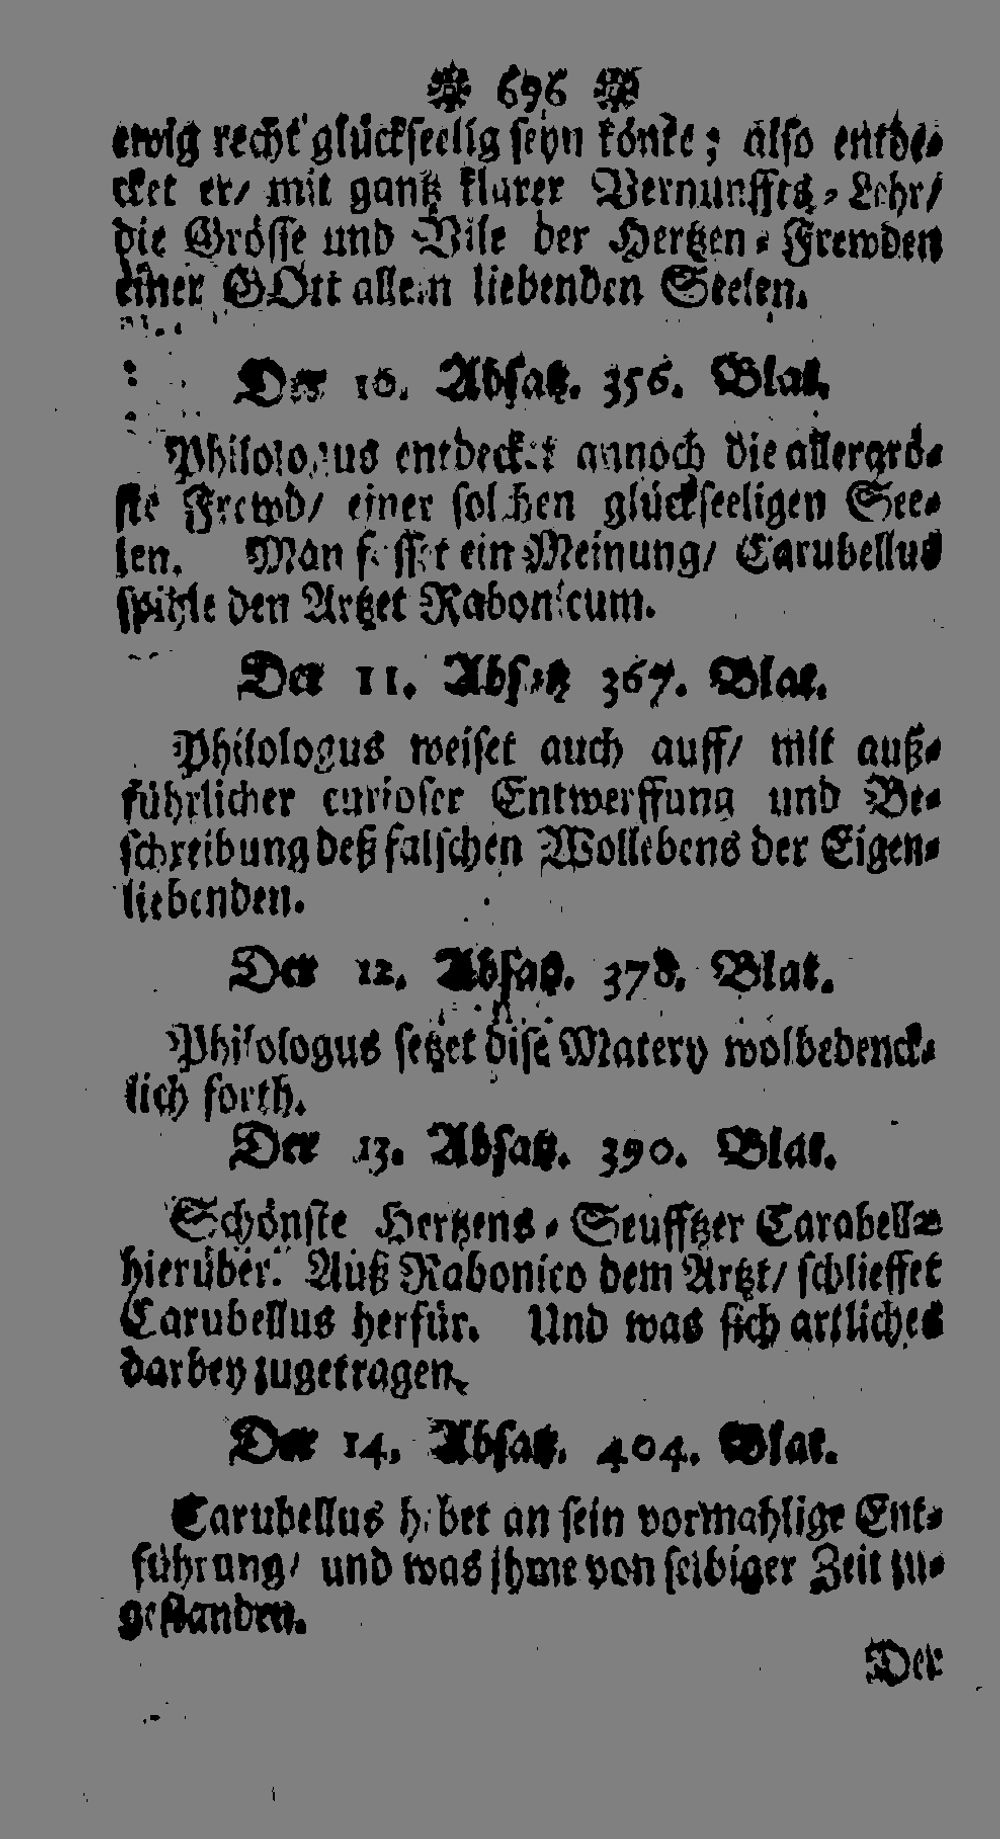 696
ewig recht glückseelig seyn könte; also entde-
cket er/ mit gantz klarer Vernunffts-Lehr/
die Grösse und Vile der Hertzen-Frewden
einer GOtt allein liebenden Seelen.
Der 10. Absatz. 356. Blat.
Philologus entdecket annoch die allergrö-
ste Frewd/ einer solchen glückseeligen See-
len. Man fasset ein Meinung/ Carubellus
spihle den Artzet Rabonicum.
Der 11. Absatz 367. Blat.
Philologus weiset auch auff/ mit auß-
führlicher curioser Entwerffung und Be-
schreibung deß falschen Wollebens der Eigen-
liebenden.
Der 12. Absatz. 378. Blat.
Philologus setzet dise Matery wolbedenck-
lich forth.
Der 13. Absatz. 390. Blat.
Schönste Hertzens-Seufftzer Carabellæ
hierüber. Auß Rabonico dem Artzt/ schlieffet
Carubellus herfür. Und was sich artliches
darbey zugetragen.
Der 14. Absatz. 404. Blat.
Carubellus hebet an sein vormahlige Ent-
führung/ und was jhme von selbiger Zeit zu-
gestanden.
Der